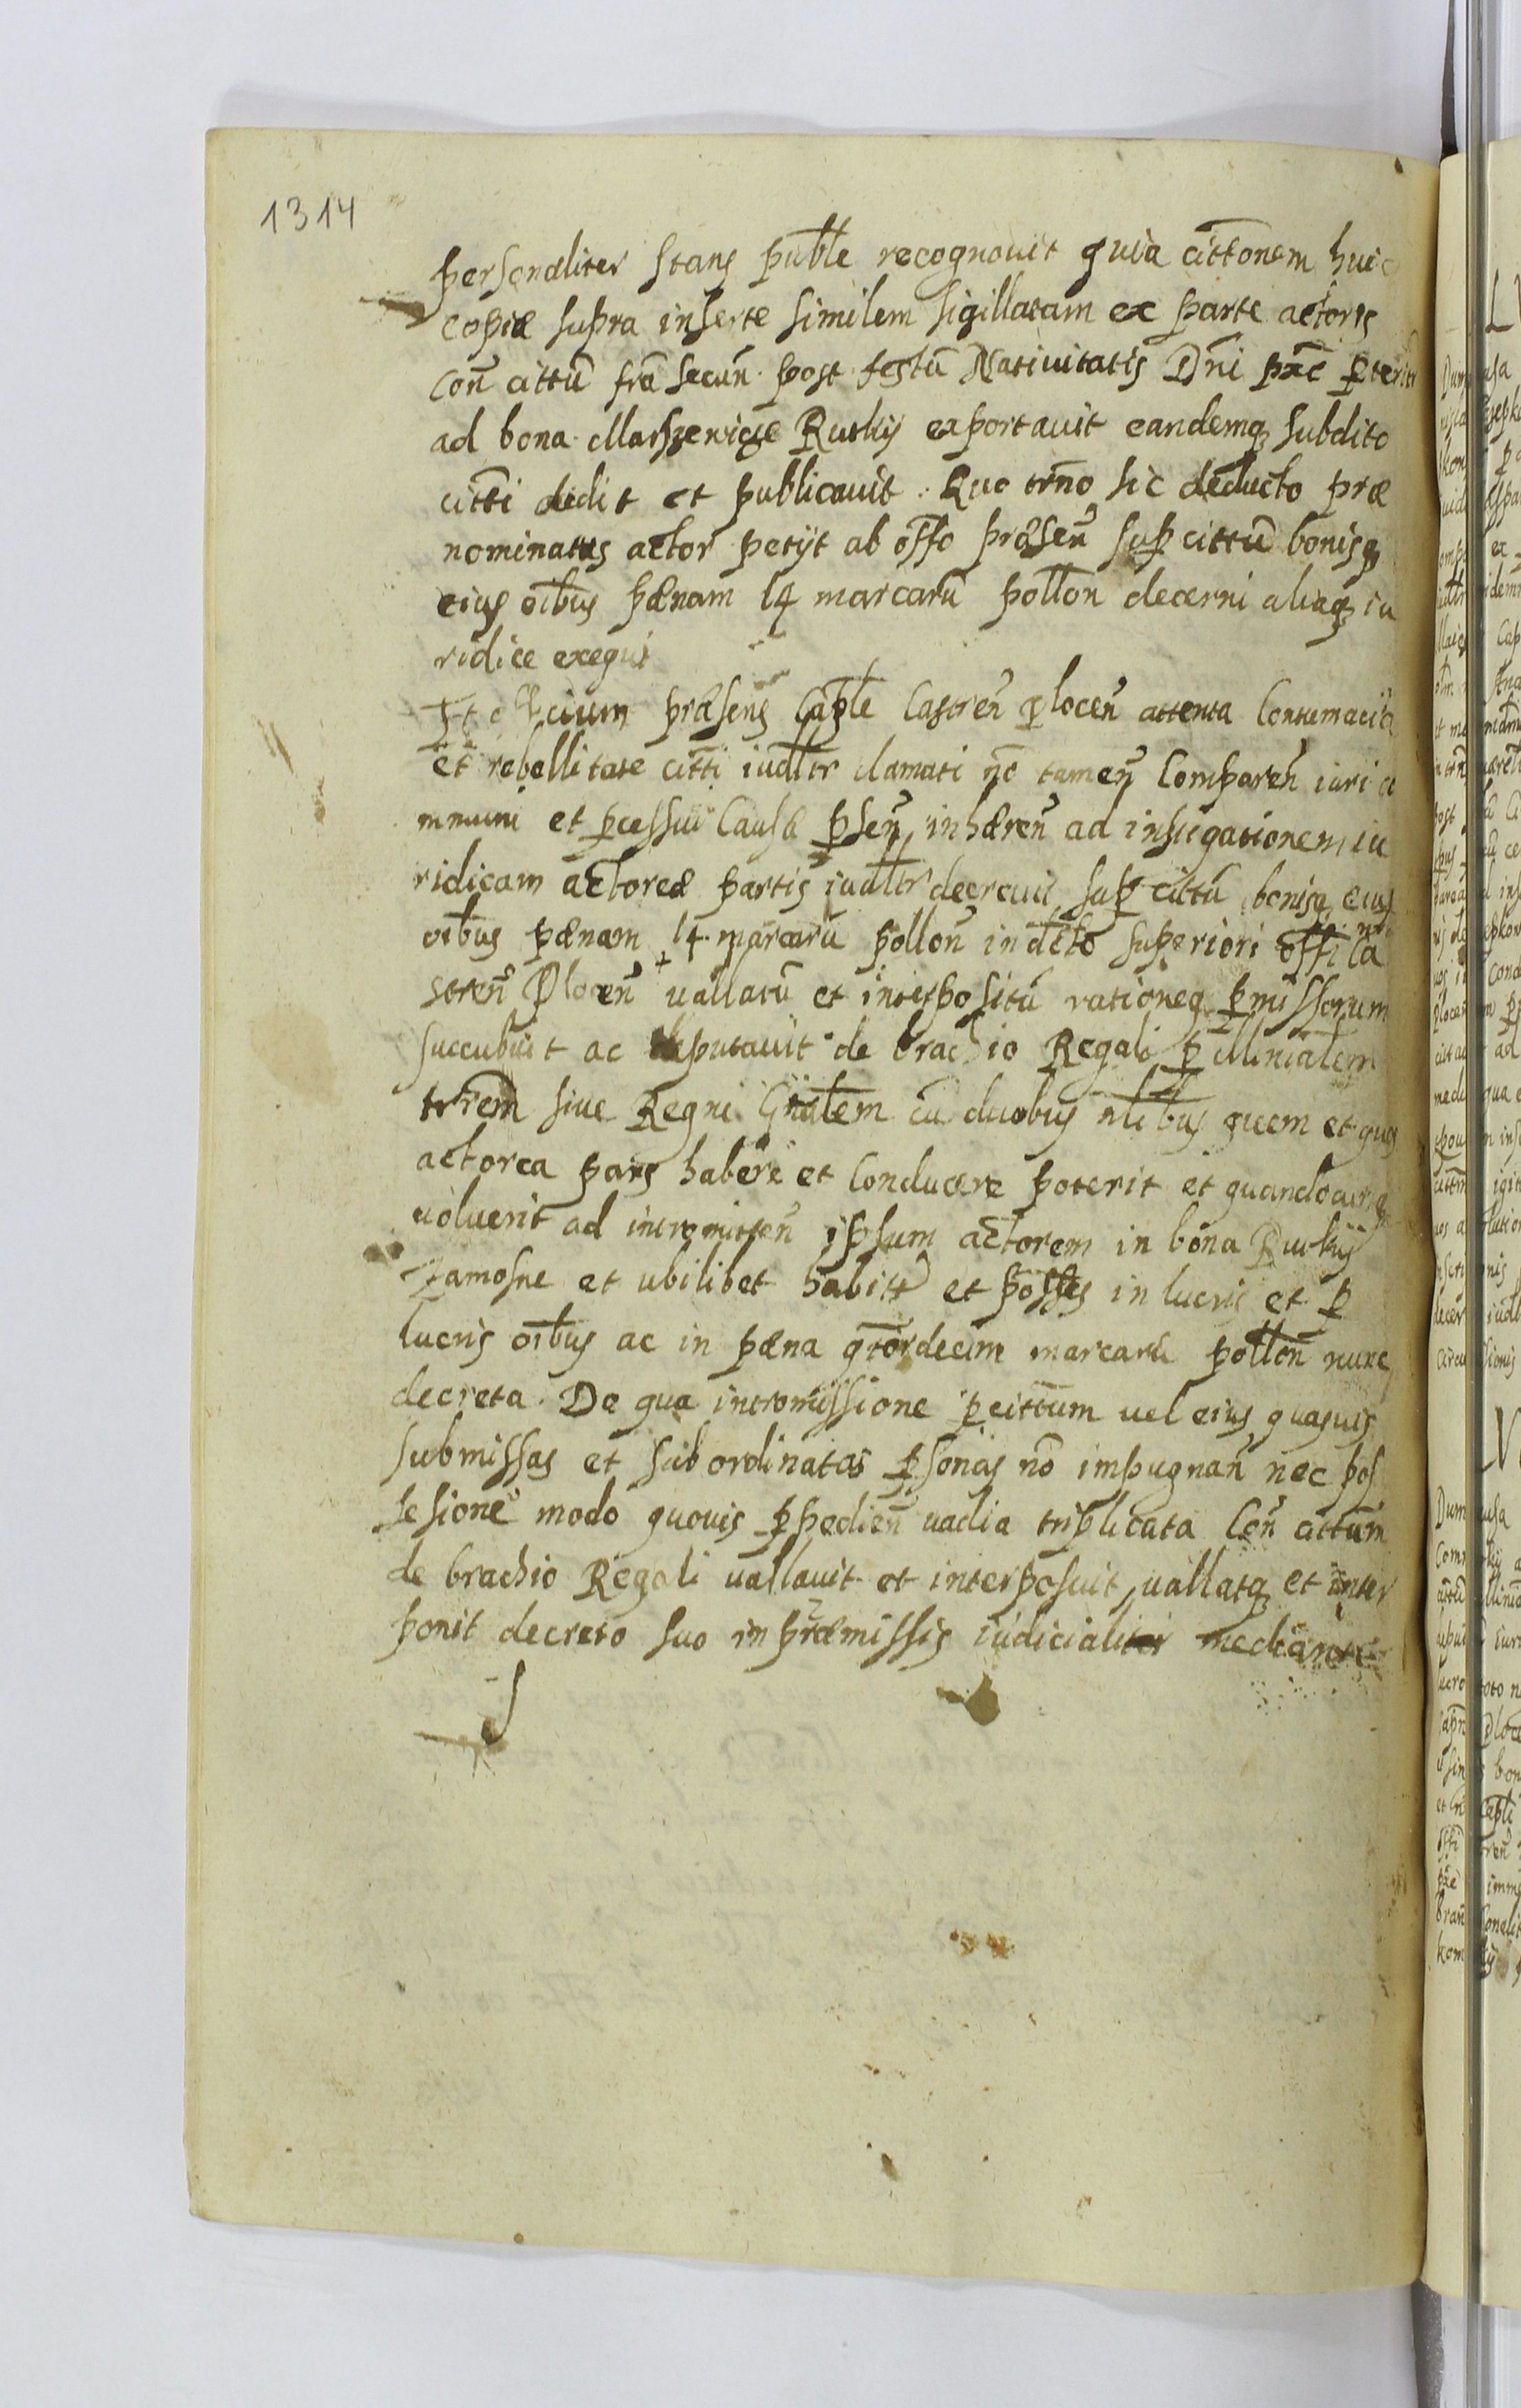 1314
personaliter stans puble recognouit quia cittonem huic
copiæ supra inserte similem sigillatam ex parte actoris
Con cittū fra secun post festū Natiuitatis Dni prc pterit
ad bona Marszewicze Rutkij exportauit eandemq subdito
citti dedit et publicauit. Quo trno sic deducto præ
nominatus actor petijt ab offo præsen sup cittū bonisq
eius oibus pænam 14 marcarū pollon decerni aliaq iu
ridice exequi
Et officium præsens Caple Castren Plocen attenta Contumacia
et rebellitate citti iudltr clamati no tamen Comparen iuri co
mmuni et pcessui Causæ psen inhæren ad instigationem iu
ridicam actoreæ partis iudltr decreuit sup cittū bonisq eius
oibus pænam 14 marcarū pollon in dcto superiori offi Ca
stren Plocen uallatū et interpositū rationeq pmissorum
succubuit ac deputauit de brachio Regali p Minialem
trrem siue Regni Gnalem cū duobus nlibus quem et quos
actorea pars habere et Conducere poterit et quandocunq
uoluerit ad intromitten ipsum actorem in bona Rutkij
Zamosne et ubilibet habitt et posses in lucris et p
lucris oibus ac in pæna qtordecim marcarū pollon nunc
decreta. De qua intromissione p cittum uel eius quasuis
submissas et subordinatas psonas no impugnan nec pos
sesione modo quouis ppedien uadia triplicata Con cittum
de brachio Regali uallauit et interposuit, uallatq et inter
ponit decreto suo in præmissis iudicialiter mediante